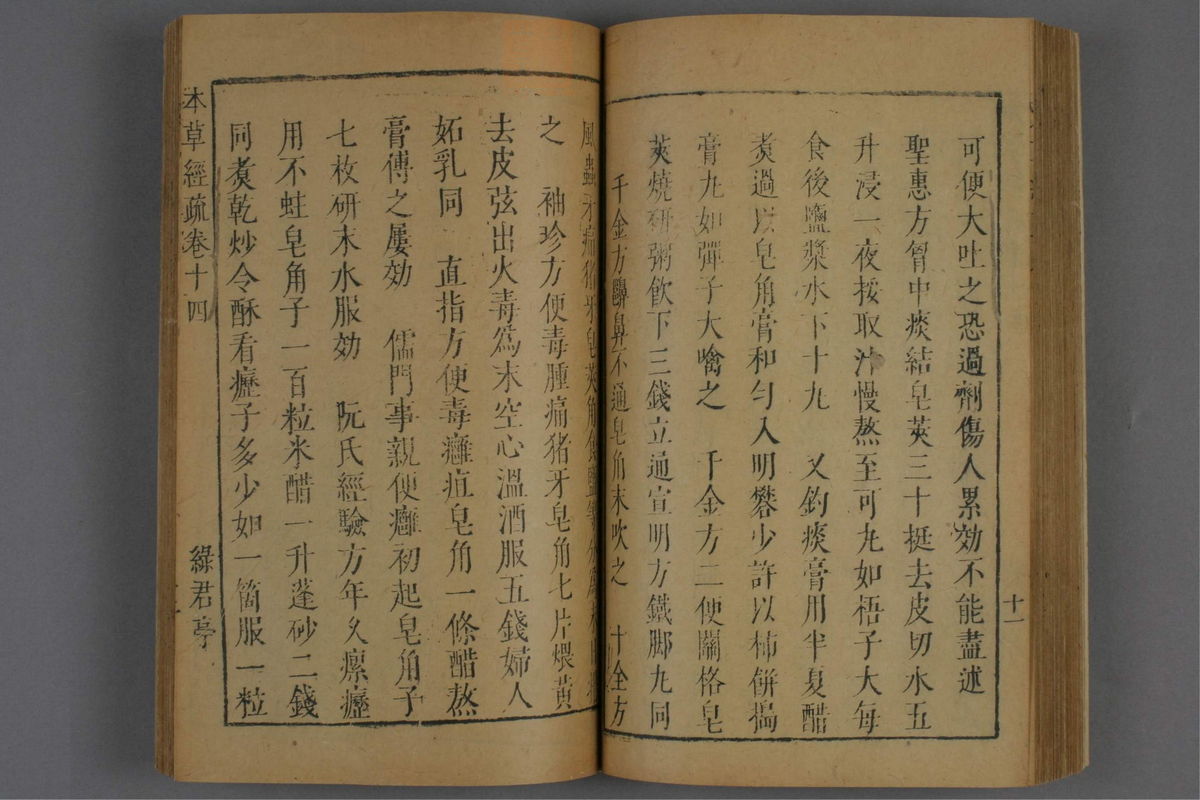 可便大吐之恐過劑傷人累効不能盡述
聖惠方胷中痰結皂莢三十挺去皮切水五
升浸一夜挼取汁慢熬至可丸如梧子大每
食後鹽漿水下十丸　又釣痰膏用半夏醋
煑過以皂角膏和勻入明礬少許以柿餅搗
膏丸如彈子大噙之　千金方二便關格皂
莢燒研粥飲下三錢立通宣明方鐵脚丸同
千金方鼻不通皂角末吹之　十全方
十一
風蟲牙痛猪牙皂莢
之　袖珍方便毒腫痛猪牙皂角七片煨黃
去皮弦出火毒爲末空心溫酒服五錢婦人
妬乳同　直指方便毒癰疽皂角一條醋熬
膏傅之屢効　儒門事親便癰初起皂角子
七枚研末水服効　阮氏經驗方年久瘰癧
用不蛀皂角子一百粒米醋一升蓬砂二錢
同煑乾炒令酥看癧子多少如一箇服一粒
本草經疏卷十四
綠君亭